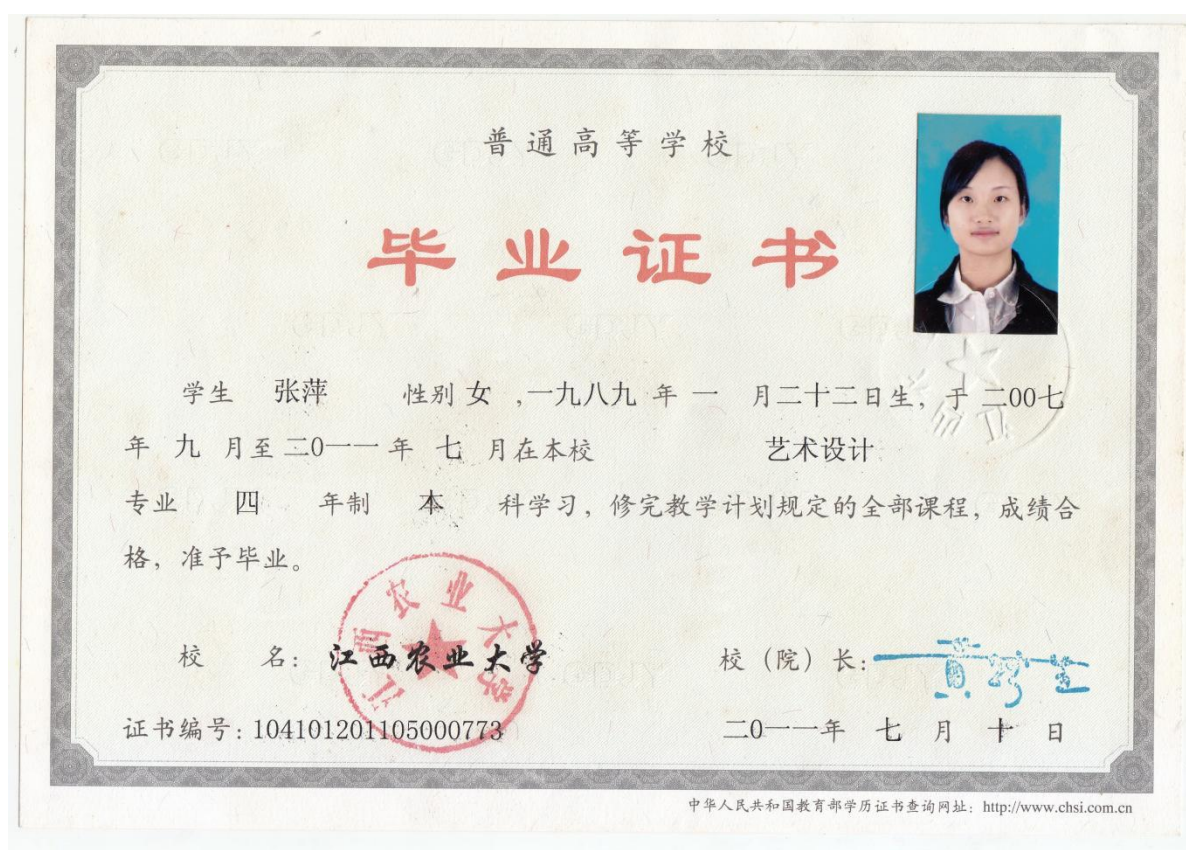 普通高等学校
毕业证书
学生 张萍 性别 女 ,一九八九 年 一 月二十二日生, 于 二00七
年 九 月至 二0一一 年 七 月在本校 艺术设计
专业 四 年制 本 科学习, 修完教学计划规定的全部课程, 成绩合
格, 准予毕业。
江西农业大学
校 名: 江西农业大学 校(院)长:
证书编号: 104101201105000773 二0一一年 七 月 十 日
中华人民共和国教育部学历证书查询网址: http://www.chsi.com.cn